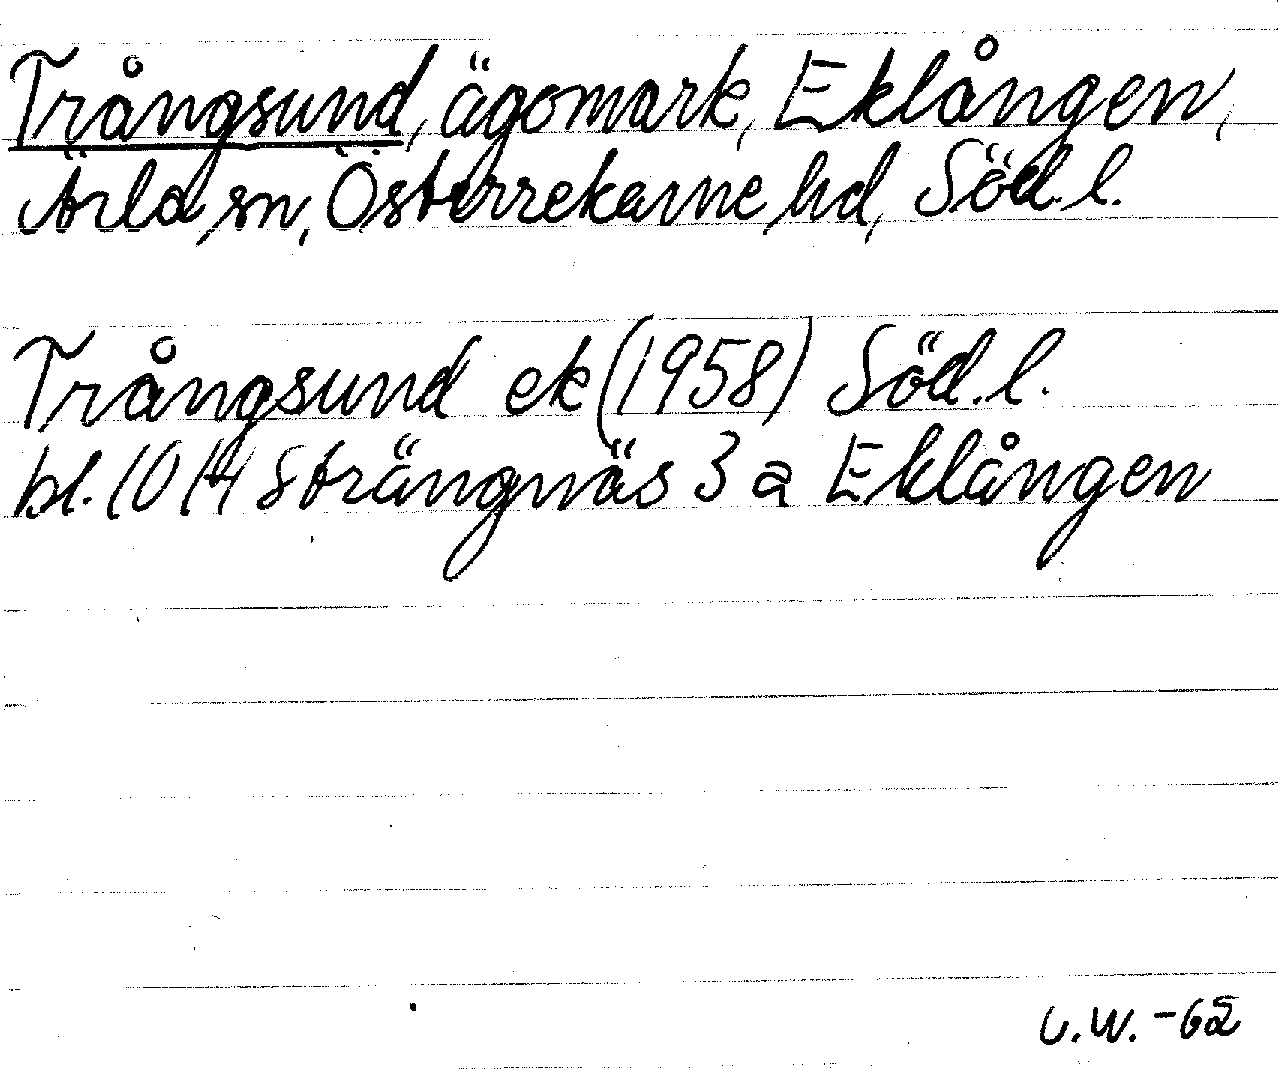 Trångsund, ägomark, Eklången,
Ärla sn, Österrekarne hd, Söd. l.
Trångsund ek (1958) Söd. l.
bl. 10 14 Strängnäs 3 a Eklången
U.W. -62